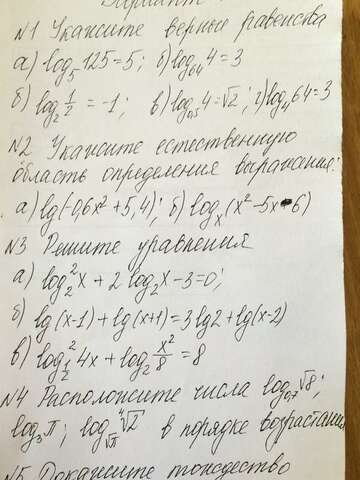 Вариант
№1 Укажите верные равенства
а) log₅125=5; б) log₆₄4=3
б) log₂ 1/2 = -1; в) log₀,₅4=√2; г) log₄64=3
№2 Укажите естественную
область определения выражения:
а) lg(-0,6x²+5,4); б) logₓ(x²-5x-6)
№3 Решите уравнения
а) log₂²x+2log₂x-3=0;
б) lg(x-1)+lg(x+1)=3lg2+lg(x-2)
в) log²_{1/2}4x+log₂ x²/8 =8
№4 Расположите числа log₀,₇√8;
log₃π; log_{√π}⁴√2 в порядке возрастания
№5 Докажите тождество